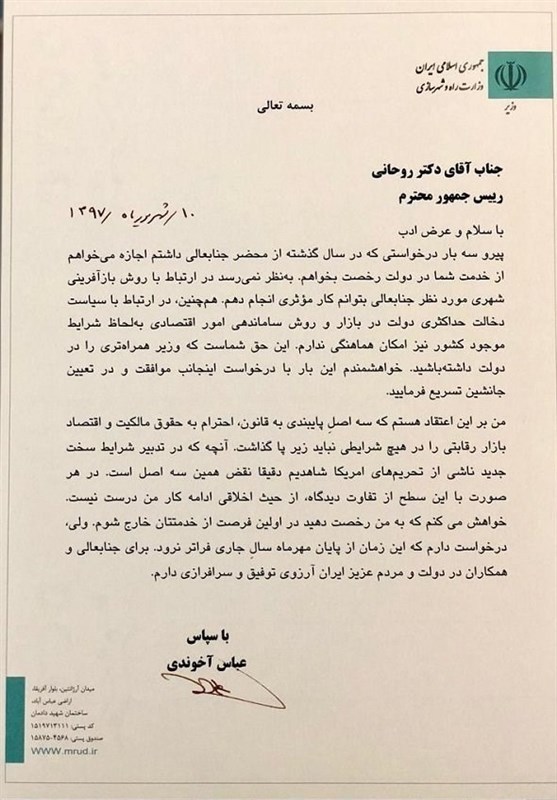 جمهوری اسلامی ایران
وزارت راه و شهرسازی
وزیر
بسمه تعالی
جناب آقای دکتر روحانی
رییس جمهور محترم
۱۰/شهریورماه/۱۳۹۷
با سلام و عرض ادب
پیرو سه بار درخواستی که در سال گذشته از محضر جنابعالی داشتم اجازه می‌خواهم
از خدمت شما در دولت رخصت بخواهم. به‌نظر نمی‌رسد در ارتباط با روش بازآفرینی
شهری مورد نظر جنابعالی بتوانم کار مؤثری انجام دهم. هم‌چنین، در ارتباط با سیاست
دخالت حداکثری دولت در بازار و روش ساماندهی امور اقتصادی به‌لحاظ شرایط
موجود کشور نیز امکان هماهنگی ندارم. این حق شماست که وزیر همراه‌تری را در
دولت داشته‌باشید. خواهشمندم این بار با درخواست اینجانب موافقت و در تعیین
جانشین تسریع فرمایید.
من بر این اعتقاد هستم که سه اصلِ پایبندی به قانون، احترام به حقوق مالکیت و اقتصاد
بازار رقابتی را در هیچ شرایطی نباید زیر پا گذاشت. آنچه که در تدبیر شرایط سخت
جدید ناشی از تحریم‌های امریکا شاهدیم دقیقا نقض همین سه اصل است. در هر
صورت با این سطح از تفاوت دیدگاه، از حیث اخلاقی ادامه کار من درست نیست.
خواهش می کنم که به من رخصت دهید در اولین فرصت از خدمتتان خارج شوم. ولی،
درخواست دارم که این زمان از پایان مهرماه سالِ جاری فراتر نرود. برای جنابعالی و
همکاران در دولت و مردم عزیز ایران آرزوی توفیق و سرافرازی دارم.
با سپاس
عباس آخوندی
میدان آرژانتین، بلوار آفریقا،
اراضی عباس آباد،
ساختمان شهید دادمان
کد پستی: ۱۵۱۹۷۱۳۱۱۱
صندوق پستی: ۱۵۸۷۵۰۴۵۶۸
www.mrud.ir